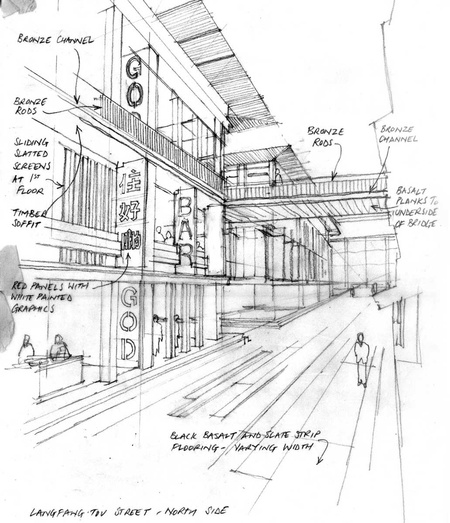 BRONZE CHANNEL
GO
BRONZE
RODS
SLIDING
SLATTED
SCREENS
AT 1ST
FLOOR
TIMBER
SOFFIT
住好啲
BAR
BRONZE
RODS
BRONZE
CHANNEL
BASALT
PLANKS TO
UNDERSIDE
OF BRIDGE.
RED PANELS WITH
WHITE PAINTED
GRAPHICS
GOD
BLACK BASALT AND SLATE STRIP
FLOORING - VARYING WIDTH
LANGFANG TOU STREET - NORTH SIDE